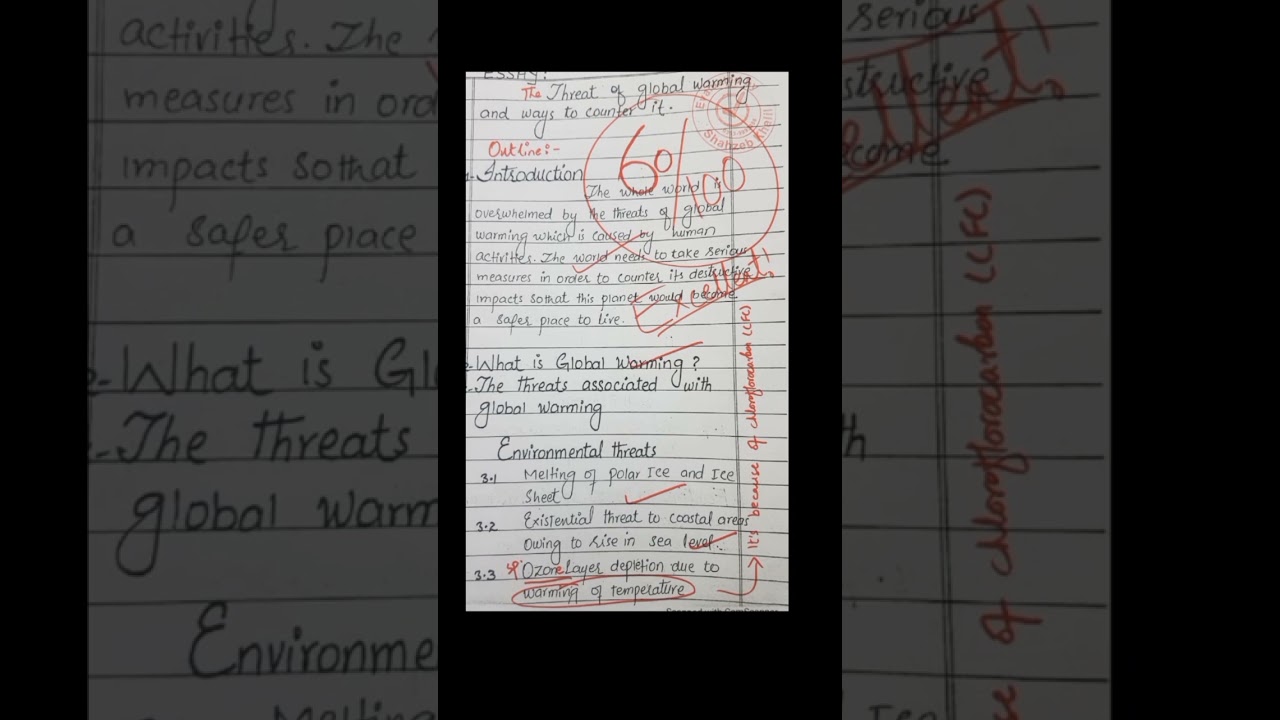 ESSAY:
The Threat of global warming
and ways to counter it.
Outline:-
1- Introduction
60/100
The whole world is
overwhelmed by the threats of global
warming which is caused by human
activities. The world needs to take serious
measures in order to counter its destructive
impacts so that this planet would become
a safer place to live.
Excellent!
2- What is Global Warming?
The threats associated with
global warming
Environmental threats
3.1 Melting of polar Ice and Ice
Sheet
3.2 Existential threat to coastal areas
Owing to rise in sea level.
3.3 sp Ozone Layer depletion due to
warming of temperature
It's because of chloroflorocarbon (CFC)
Shahzeb Khalil
activities. The
measures in ord
impacts so that
a safer place
What is Gl
The threats
global warm
Environme
Melting
serious
structive
cellent!
come
th
of chloroflorocarbon (CFC)
Ice